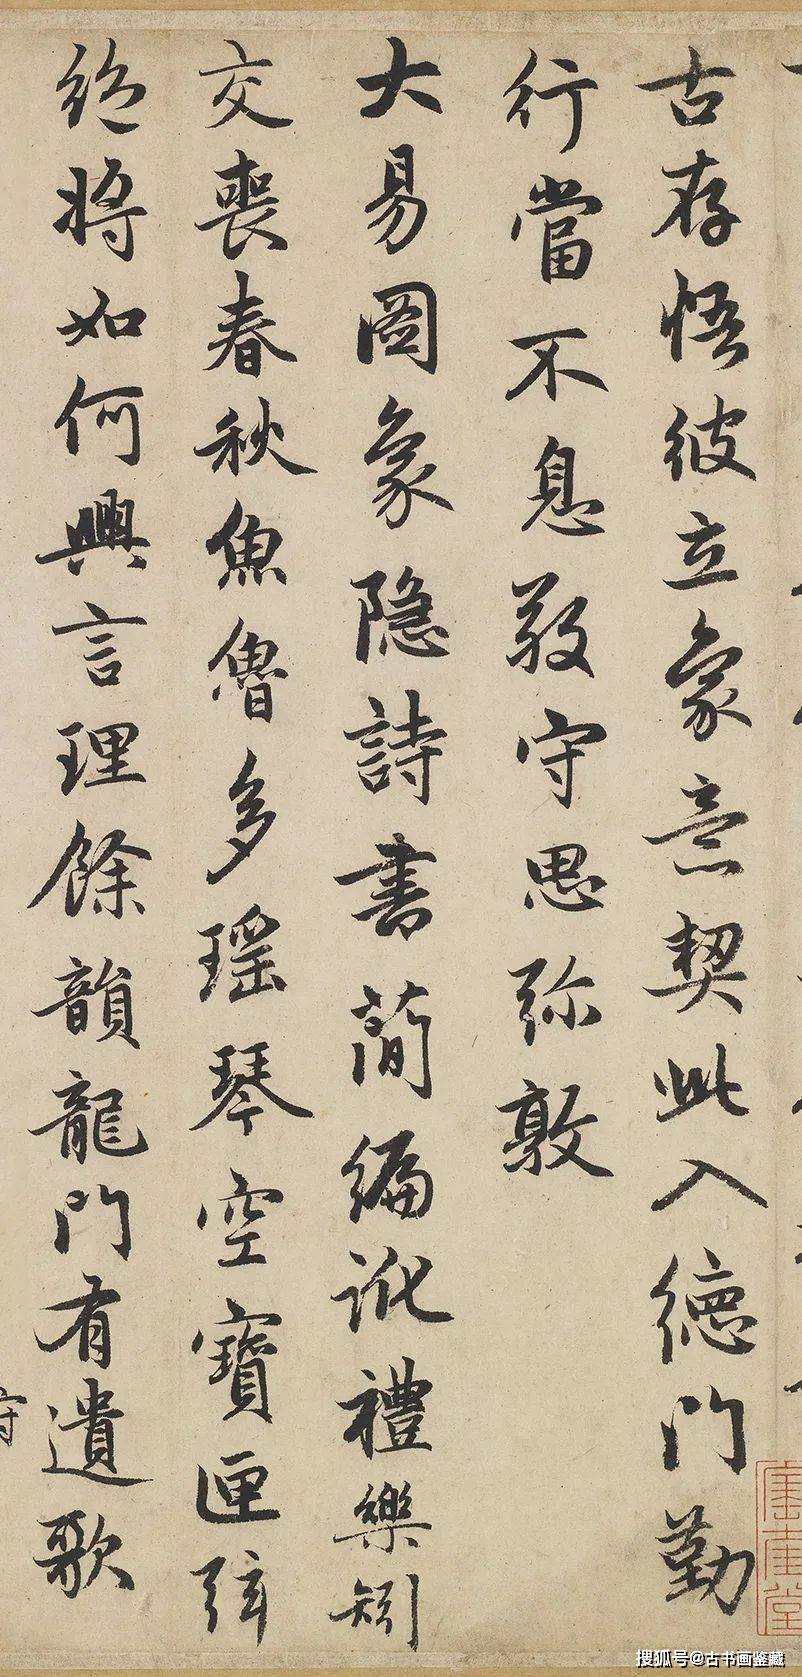 古存悟彼立象意契此入德門勤
行當不息敬守思弥敦
大易圖象隱詩書簡編訛禮樂矧
交喪春秋魚魯多瑶琴空寶匣弦
絶將如何興言理餘韻龍門有遺歌
搜狐号@古书画鉴藏